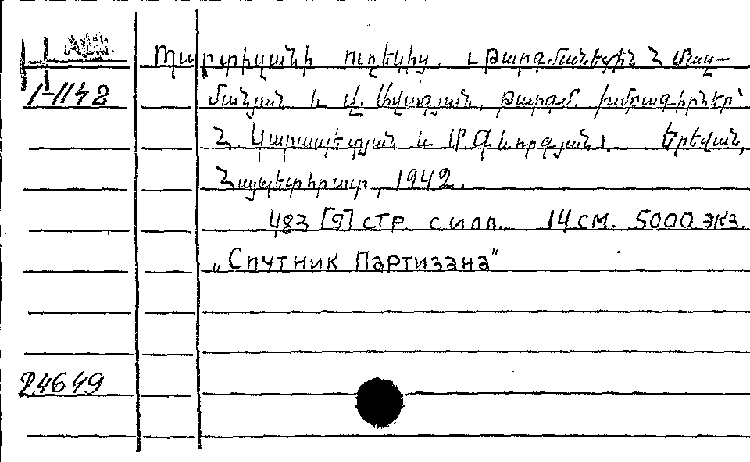 Պարտիզանի ուղեկից. Թարգմանեցին Ն. Մաս-
I-1142 մանյան և Վ. Ավագյան. թարգմ. խմբագիրներ՝
Հ. Կարապետյան և Մ. Գևորգյան. Երեվան,
Հայպետհրատ, 1942.
483 [9] стр. с илл. 14 см. 5000 экз.
„Спутник Партизана"
24649